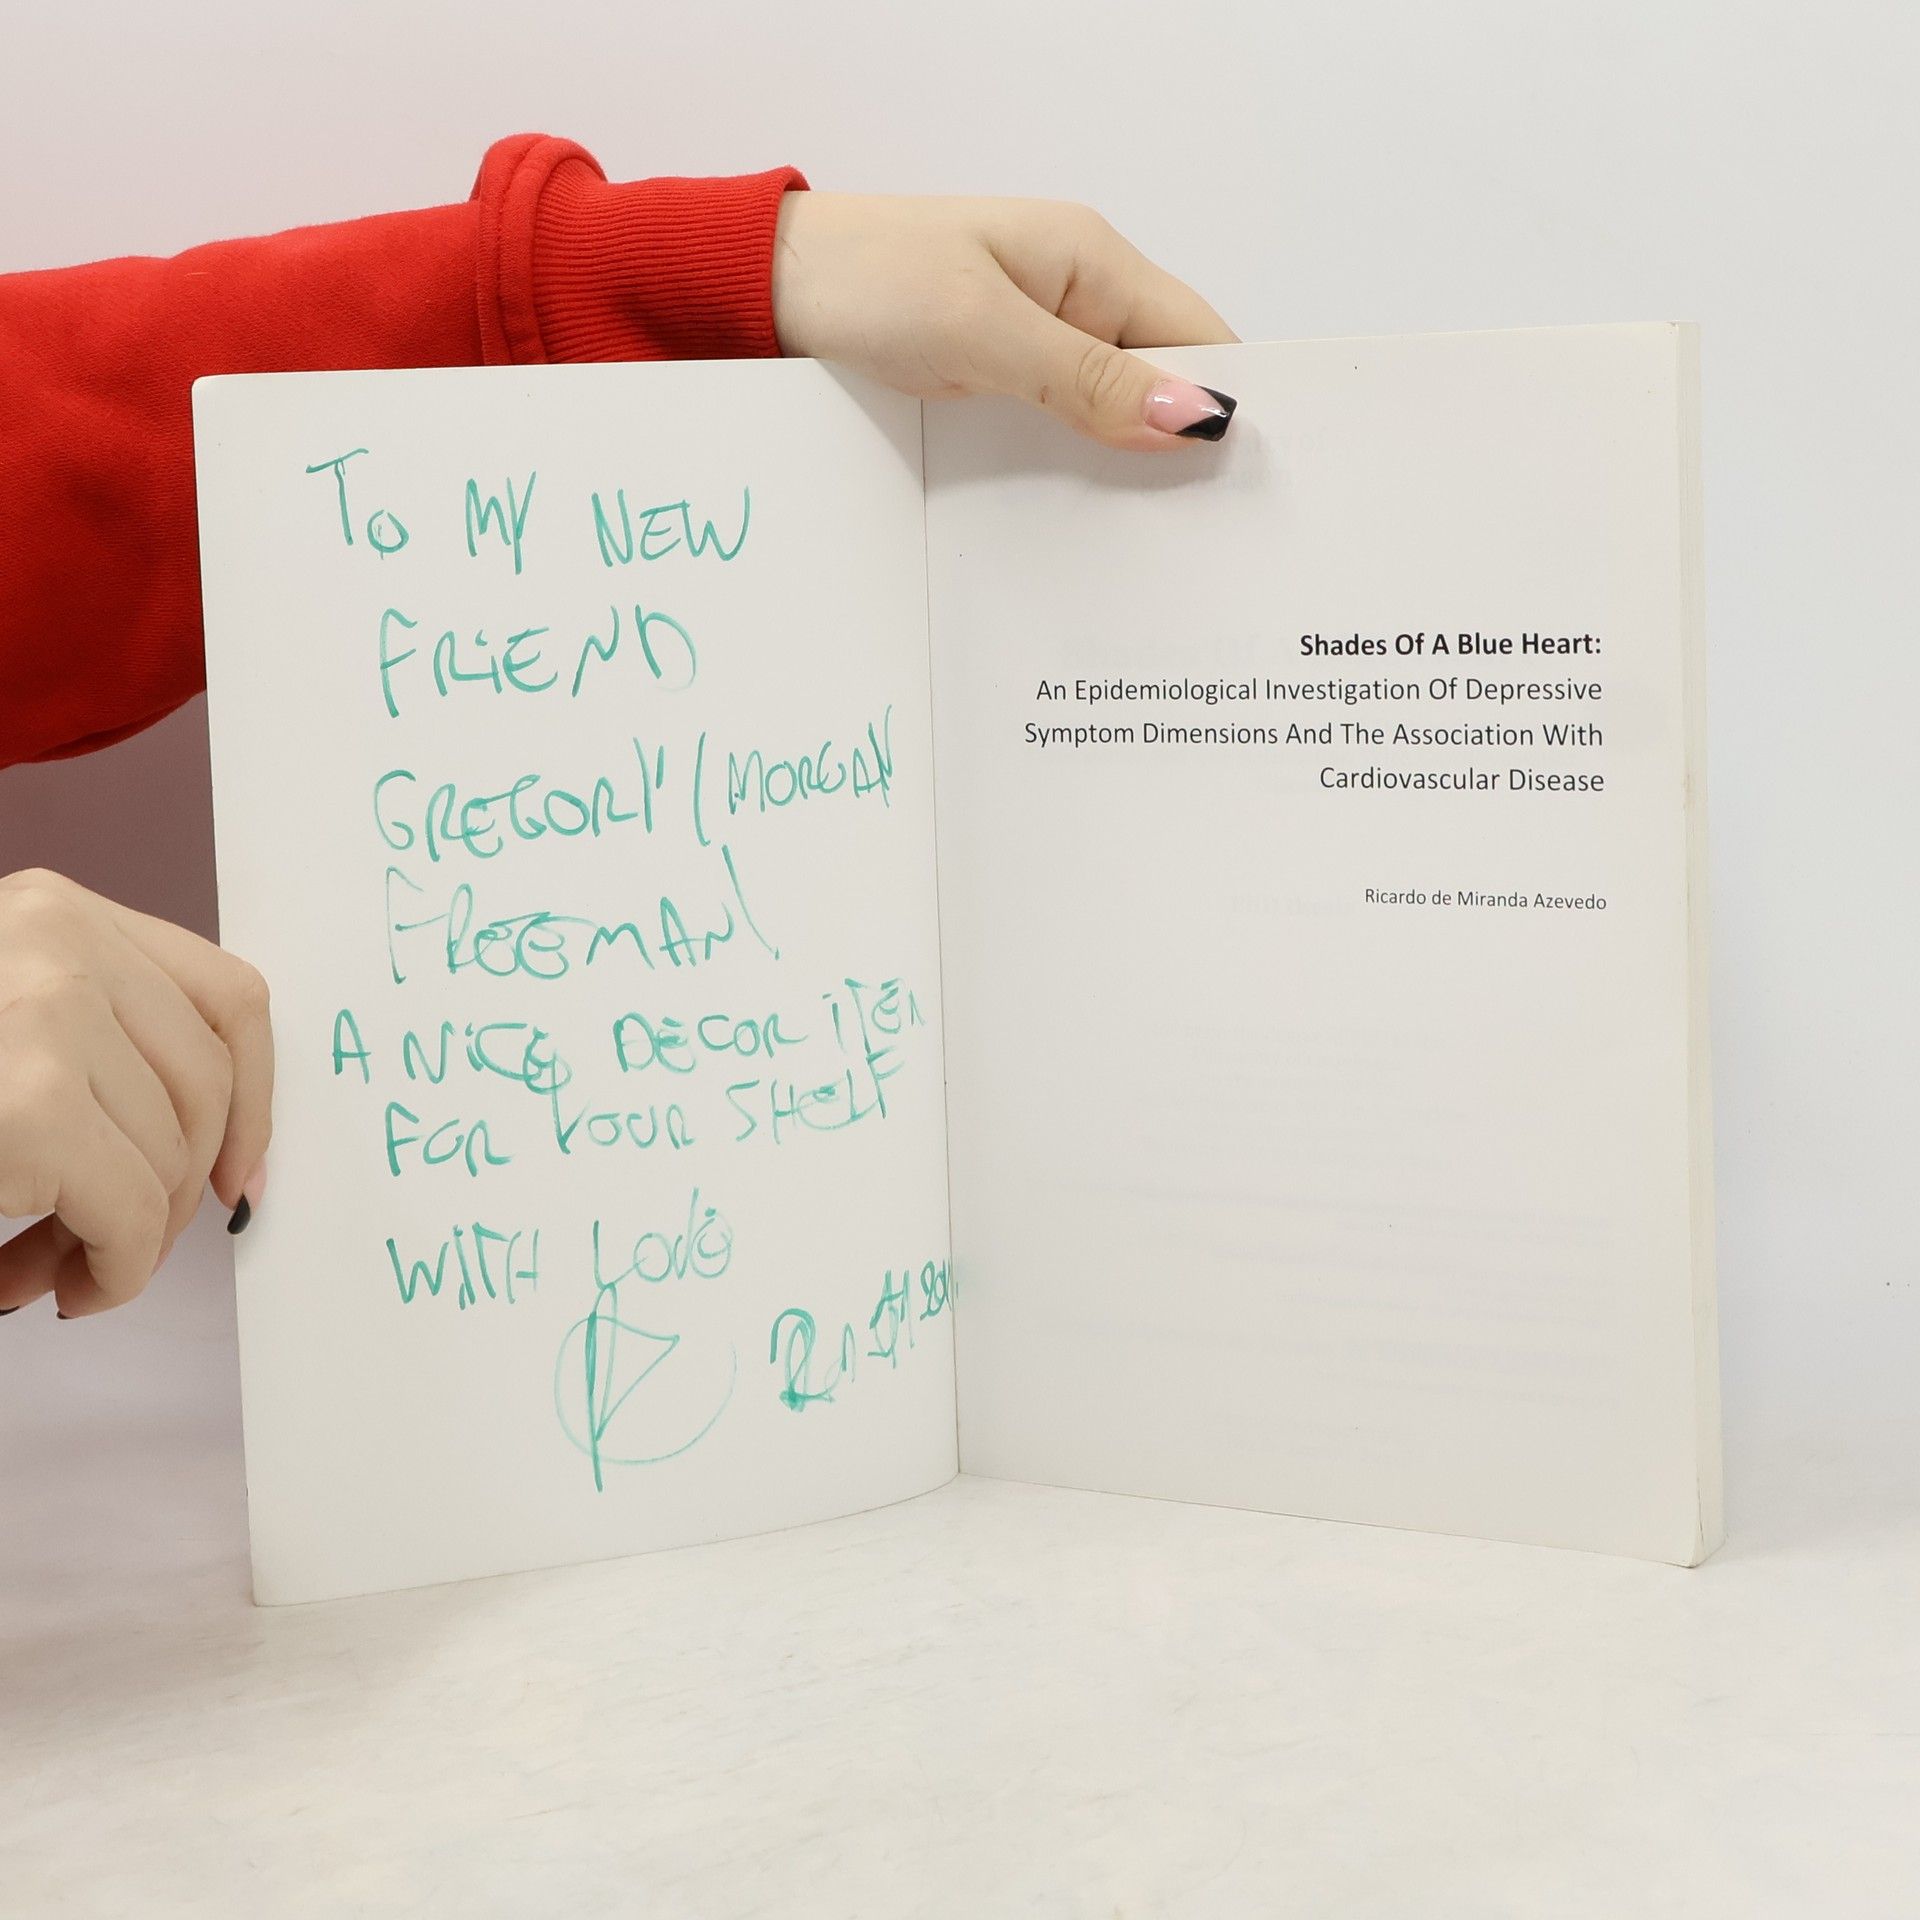 TO MY NEW
FRIEND
GREGORY (MORGAN
FREEMAN)
A NICE DECOR ITEM
FOR YOUR SHELF
WITH LOVE
Shades Of A Blue Heart:
An Epidemiological Investigation Of Depressive
Symptom Dimensions And The Association With
Cardiovascular Disease
Ricardo de Miranda Azevedo